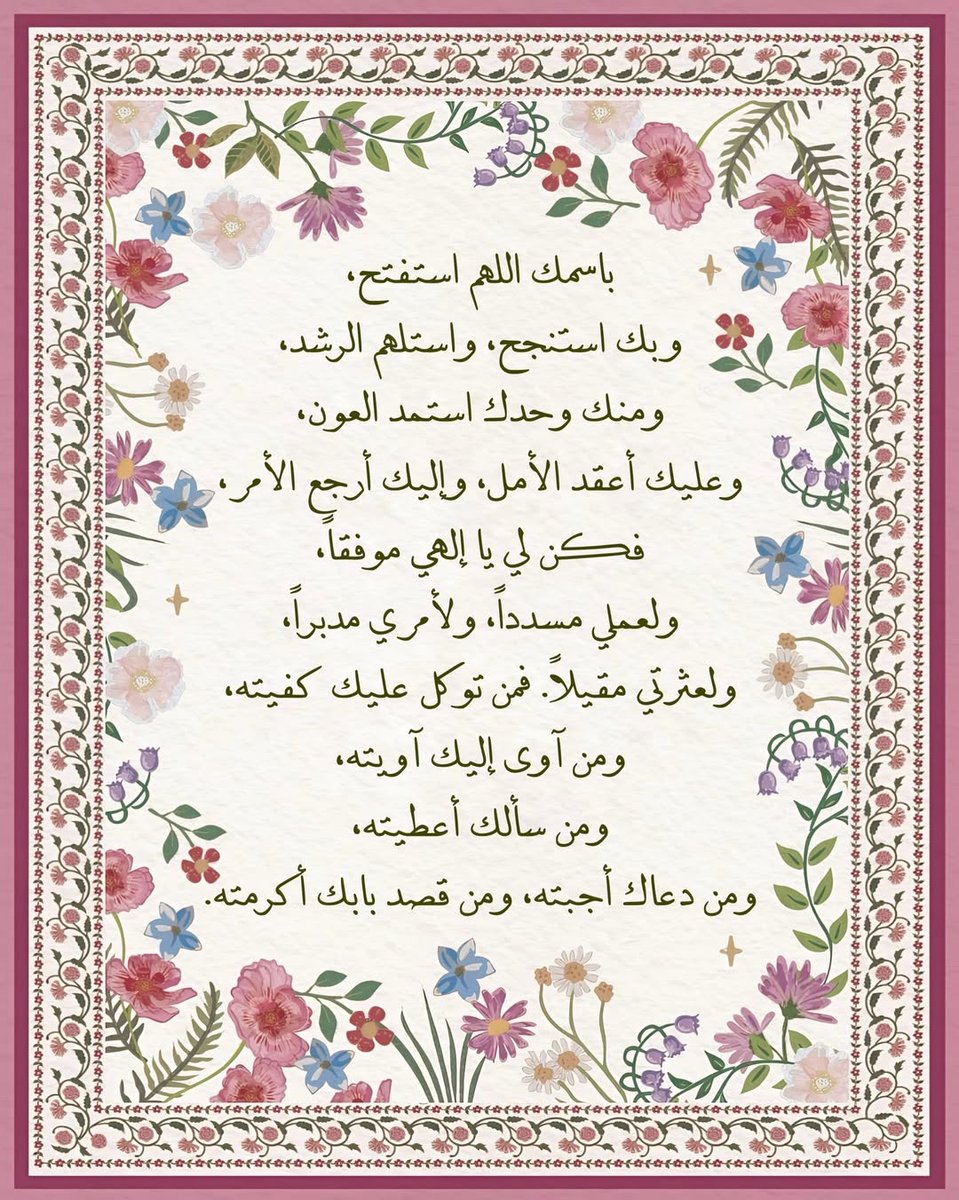 باسمك اللهم استفتح،
وبك استنجح، واستلهم الرشد،
ومنك وحدك استمد العون،
وعليك أعقد الأمل، وإليك أرجع الأمر،
فكن لي يا إلهي موفقاً،
ولعملي مسدداً، ولأمري مدبراً،
ولعثرتي مقيلاً. فمن توكل عليك كفيته،
ومن آوى إليك آويته،
ومن سألك أعطيته،
ومن دعاك أجبته، ومن قصد بابك أكرمته.